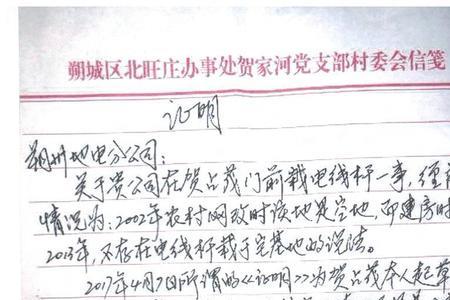 朔城区北旺庄办事处贺家河党支部村委会信笺
证明
朔州地电分公司：
关于贵公司在贺占茂门前栽电线杆一事，经
情况为：2002年农村网改时该地是空地，即建房时
2013年，不存在电线杆栽于宅基地的说法。
2017年4月7日所谓的《证明》为贺占茂本人起草